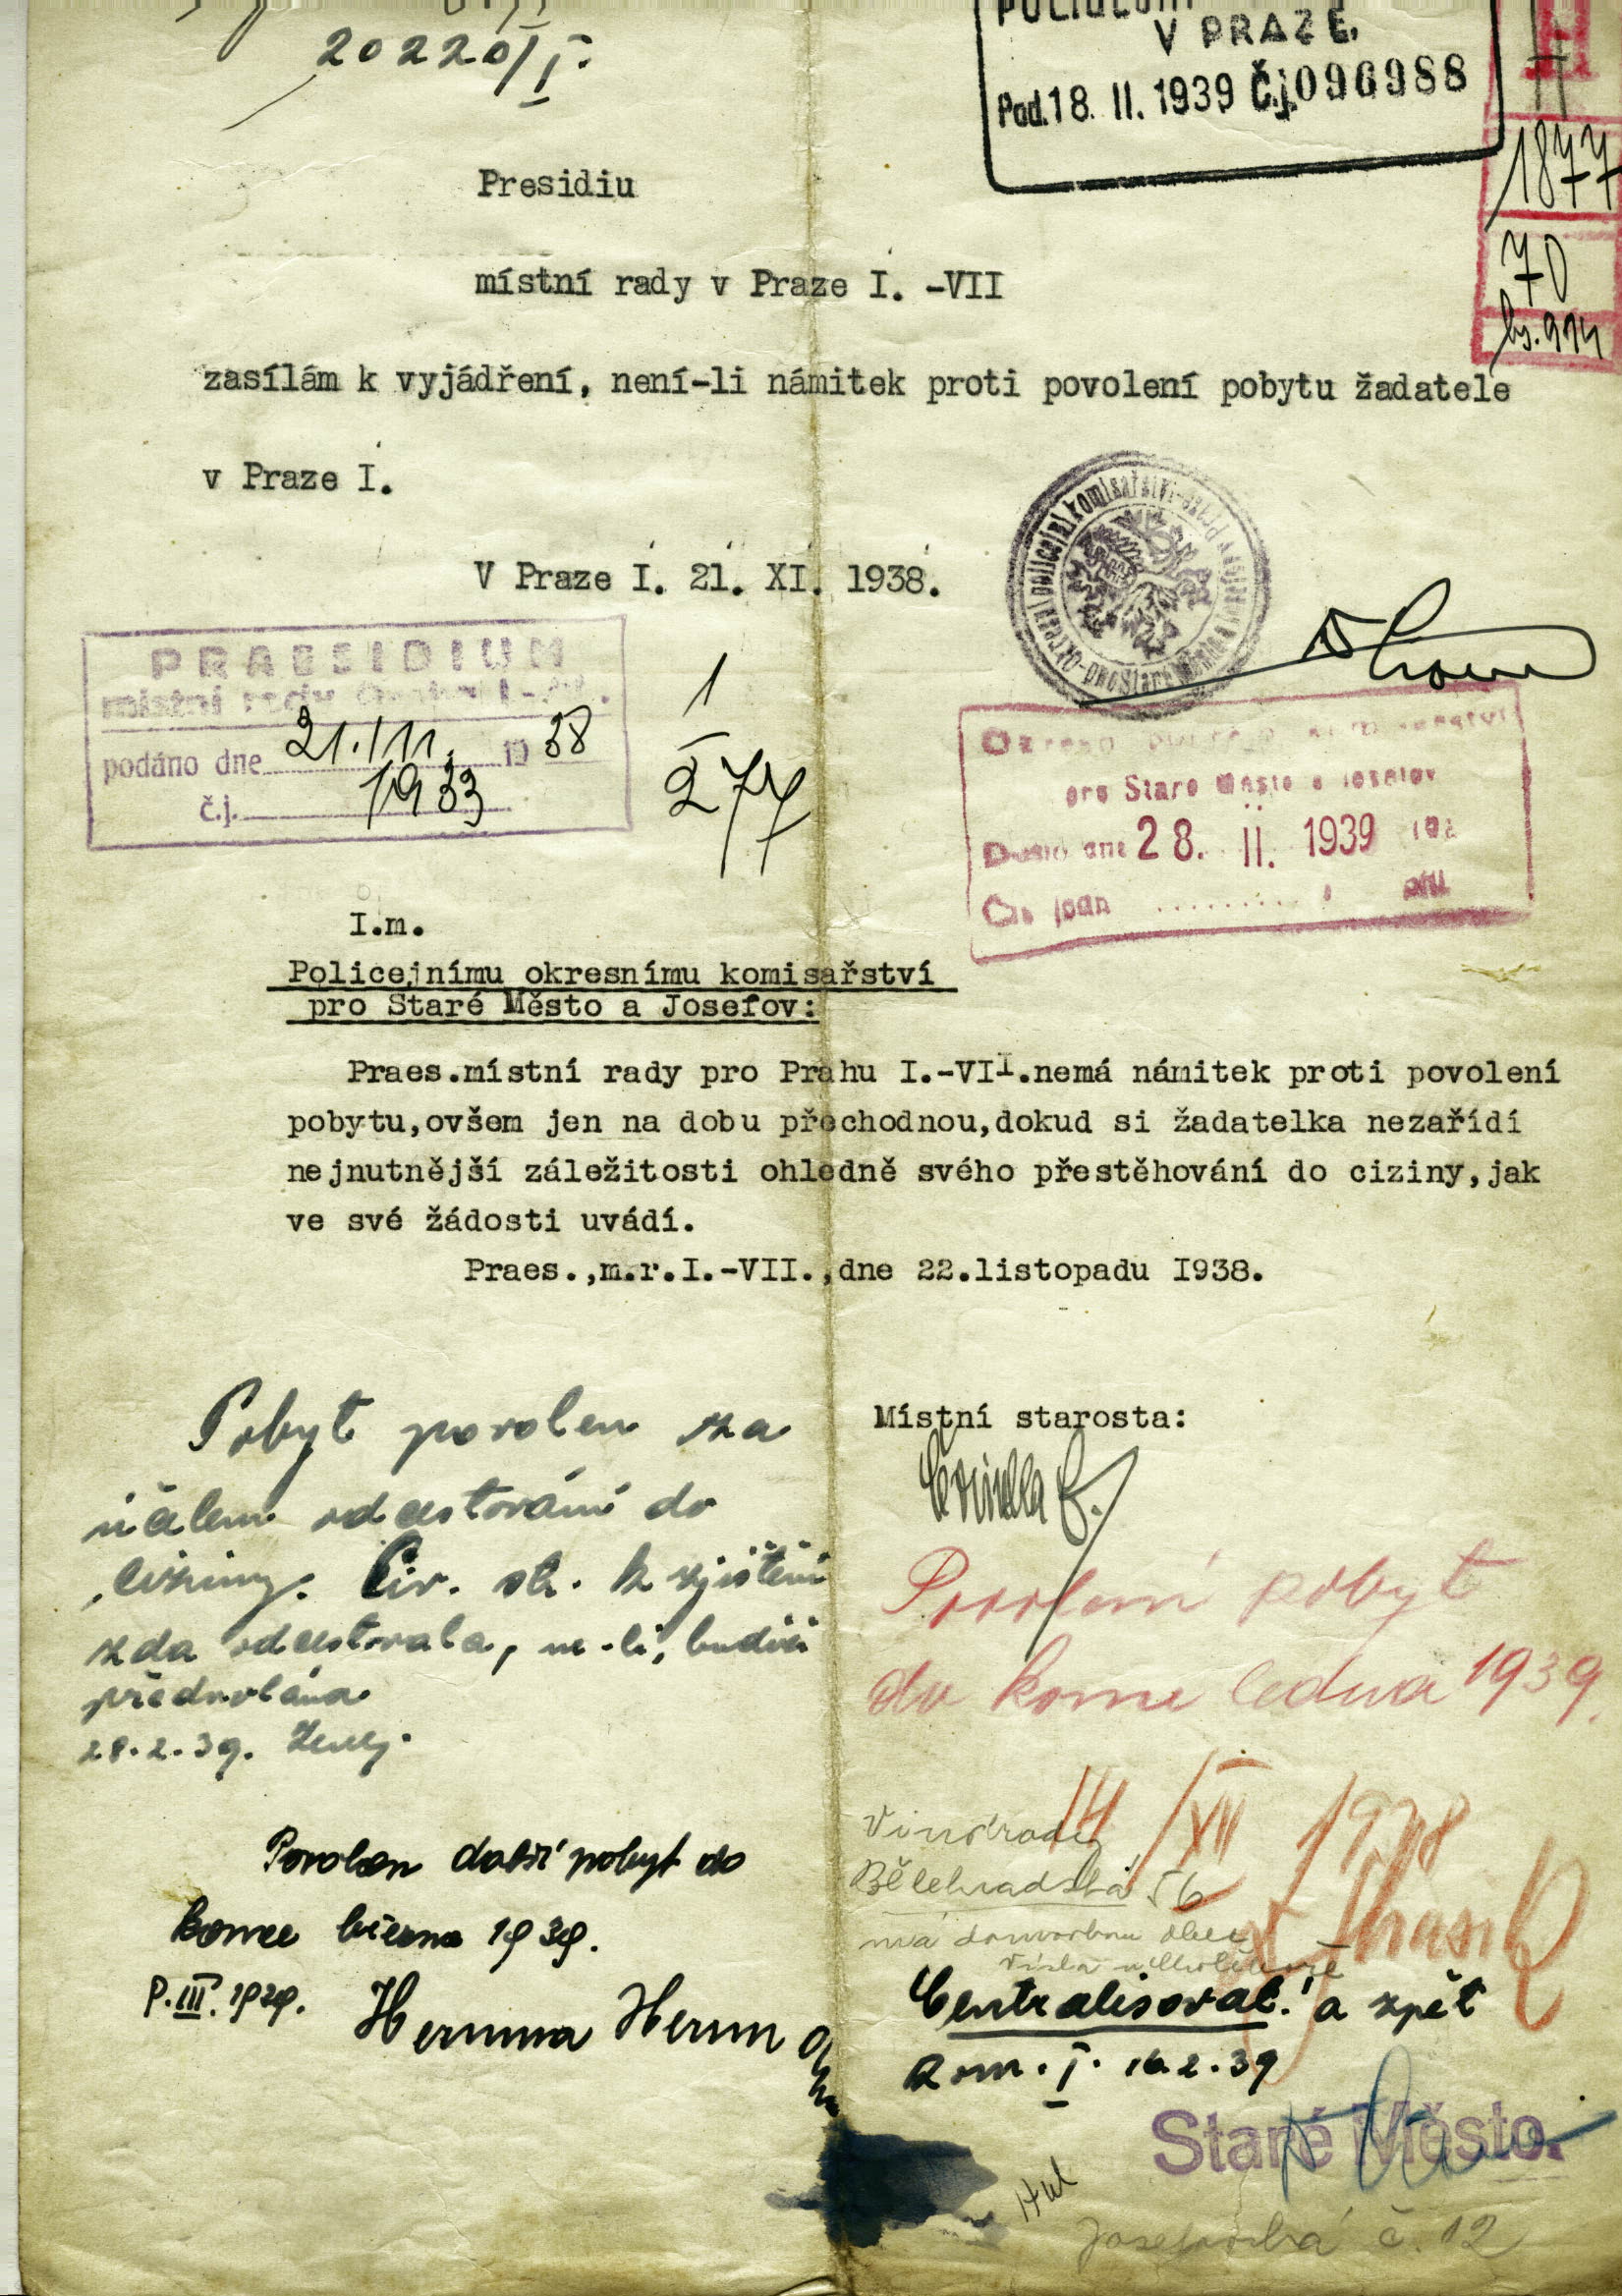 20220/I.
V PRAZE.
Pod. 18. II. 1939 Č.j. 096988
1877
70
Presidiu
místní rady v Praze I. -VII
zasílám k vyjádření, není-li námitek proti povolení pobytu žadatele
v Praze I.
V Praze I. 21. XI. 1938.
PRAESIDIUM
místní rady
podáno dne 21./11. 19 38
č.j. 1933
1
277
pro Staré Město a Josefov
Došlo dne 28. II. 1939
I.m.
Policejnímu okresnímu komisařství
pro Staré Město a Josefov:
Praes.místní rady pro Prahu I.-VII.nemá námitek proti povolení
pobytu,ovšem jen na dobu přechodnou,dokud si žadatelka nezařídí
nejnutnější záležitosti ohledně svého přestěhování do ciziny,jak
ve své žádosti uvádí.
Praes.,m.r.I.-VII.,dne 22.listopadu 1938.
Místní starosta:
Pobyt povolen za
účelem odcestování do
ciziny. Civ. str. k zjištění
zda odcestovala, ne-li, budiž
předvolána
28.2.39.
Povolení pobyt
do konce ledna 1939.
14/XII 1938
Vinohrady
Bělehradská 56
má domovskou obec
Povolen další pobyt do
konce března 1939.
Hermina Herm
Centralisovat! a zpět
kom. I. 16.2.39
Staré Město.
Josefovská č. 12